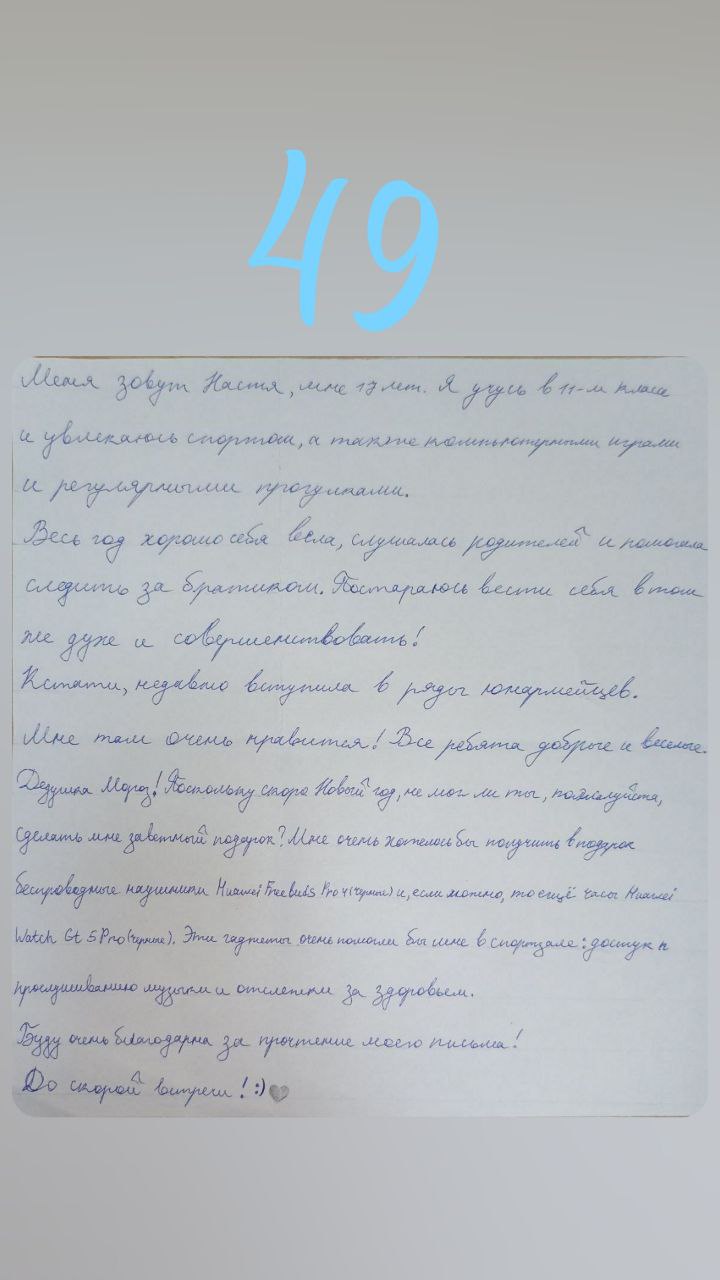 49
Меня зовут Настя, мне 17 лет. Я учусь в 11-м класе
и увлекаюсь спортом, а также компьютерными играми
и регулярными прогулками.
Весь год хорошо себя вела, слушалась родителей и помогала
следить за братиком. Постараюсь вести себя в том
же духе и совершенствовать!
Кстати, недавно вступила в ряды юнармейцев.
Мне там очень нравится! Все ребята добрые и веселые.
Дедушка Мороз! Поскольку скоро Новый год, не мог ли ты, пожалуйста,
сделать мне заветный подарок? Мне очень хотелось бы получить в подарок
беспроводные наушники Huawei FreeBuds Pro 4 (черные) и, если можно, то ещё часы Huawei
Watch Gt 5 Pro (черные). Эти гаджеты очень помогли бы мне в спортзале: доступ к
прослушиванию музыки и отслежки за здоровьем.
Буду очень благодарна за прочтение моего письма!
До скорой встречи! :)